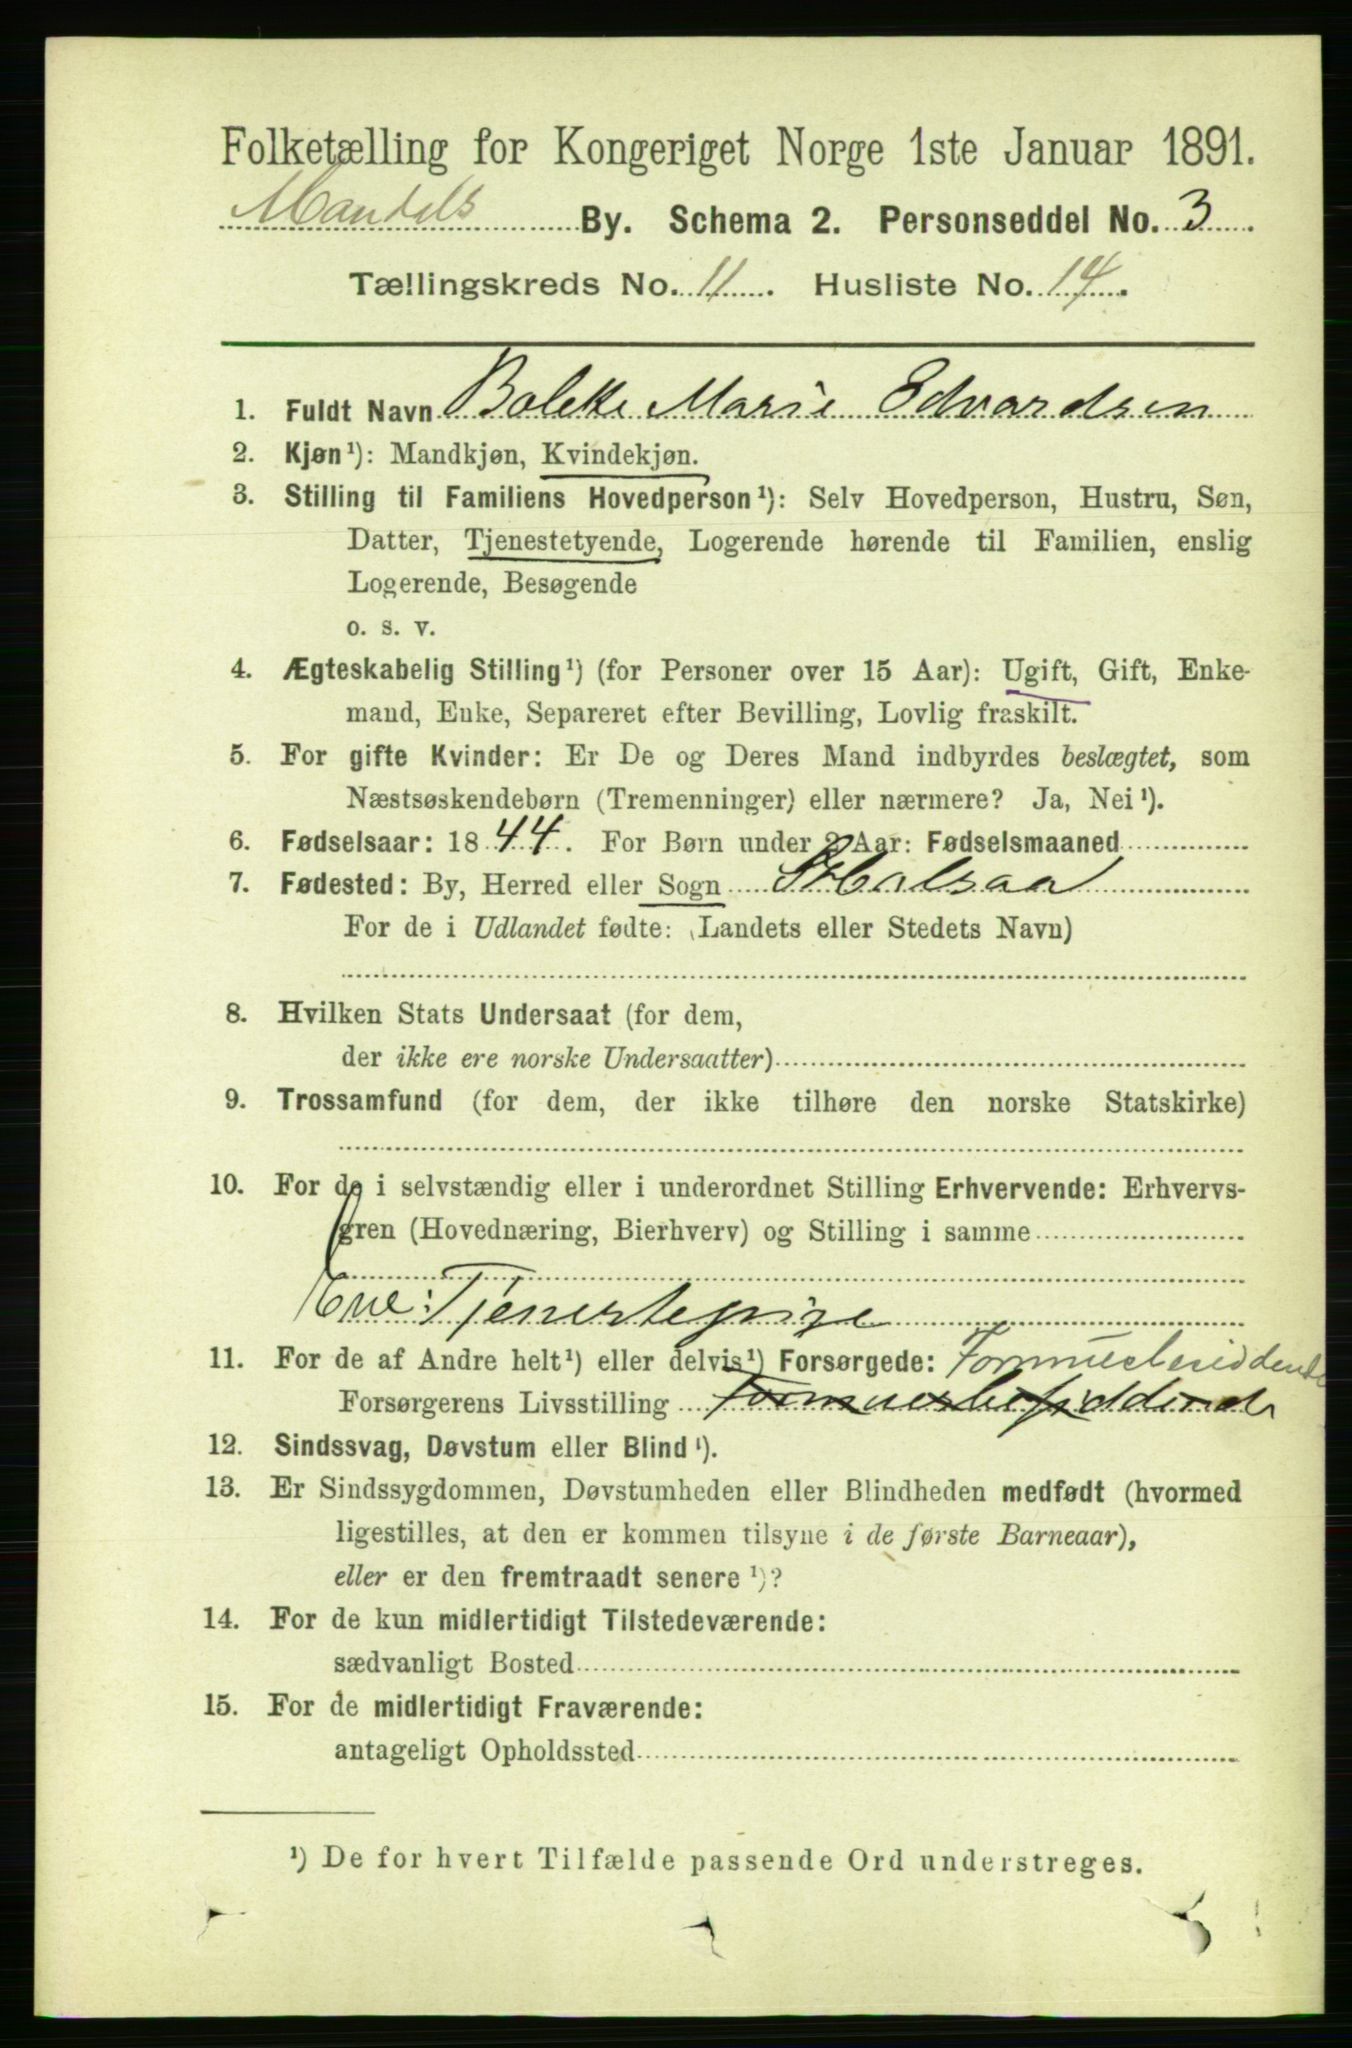 Folketælling for Kongeriget Norge 1ste Januar 1891.
Mandals By. Schema 2. Personseddel No. 3
Tællingskreds No. 11. Husliste No. 14.
1. Fuldt Navn Bolette Marie Edvardsen
2. Kjøn¹): Mandkjøn, Kvindekjøn.
3. Stilling til Familiens Hovedperson¹): Selv Hovedperson, Hustru, Søn,
Datter, Tjenestetyende, Logerende hørende til Familien, enslig
Logerende, Besøgende
o. s. v.
4. Ægteskabelig Stilling¹) (for Personer over 15 Aar): Ugift, Gift, Enke-
mand, Enke, Separeret efter Bevilling, Lovlig fraskilt.
5. For gifte Kvinder: Er De og Deres Mand indbyrdes beslægtet, som
Næstsøskendebørn (Tremenninger) eller nærmere? Ja, Nei¹).
6. Fødselsaar: 1844. For Børn under 2 Aar: Fødselsmaaned
7. Fødested: By, Herred eller Sogn Halsaa
For de i Udlandet fødte: (Landets eller Stedets Navn)
8. Hvilken Stats Undersaat (for dem,
der ikke ere norske Undersaatter)
9. Trossamfund (for dem, der ikke tilhøre den norske Statskirke)
10. For de i selvstændig eller i underordnet Stilling Erhvervende: Erhvervs-
gren (Hovednæring, Bierhverv) og Stilling i samme
Tjenestepige
11. For de af Andre helt¹) eller delvis¹) Forsørgede: Formuesbesiddende
Forsørgerens Livsstilling Formuesbesiddende
12. Sindssvag, Døvstum eller Blind¹).
13. Er Sindssygdommen, Døvstumheden eller Blindheden medfødt (hvormed
ligestilles, at den er kommen tilsyne i de første Barneaar),
eller er den fremtraadt senere¹)?
14. For de kun midlertidigt Tilstedeværende:
sædvanligt Bosted
15. For de midlertidigt Fraværende:
antageligt Opholdssted
¹) De for hvert Tilfælde passende Ord understreges.